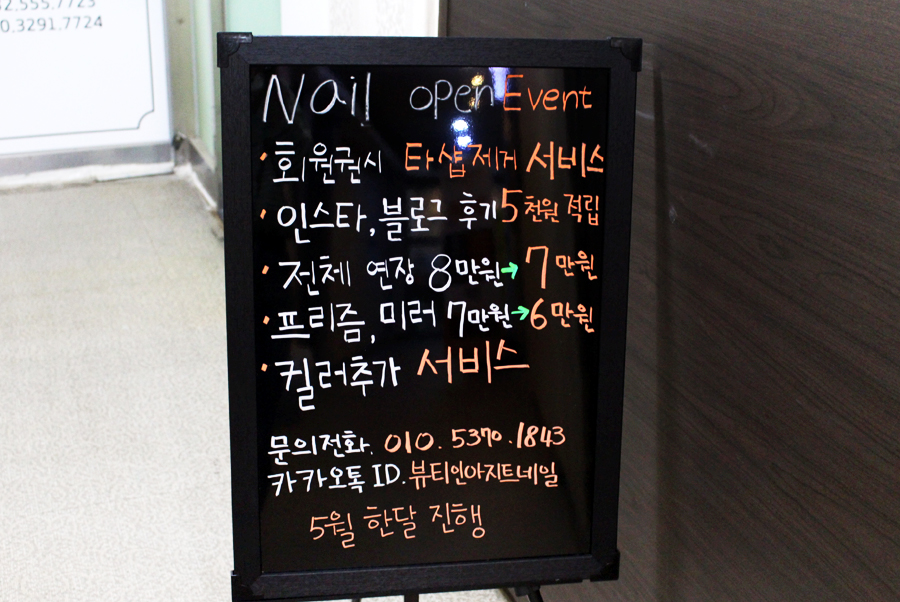 2.555.7723
0.3291.7724
Nail open Event
· 회원권시 타샵제거 서비스
· 인스타, 블로그 후기 5천원 적립
· 전체 연장 8만원→ 7만원
· 프리즘, 미러 7만원→6만원
· 컬러추가 서비스
문의전화. 010. 5370. 1843
카카오톡 ID. 뷰티인아지트네일
5월 한달 진행